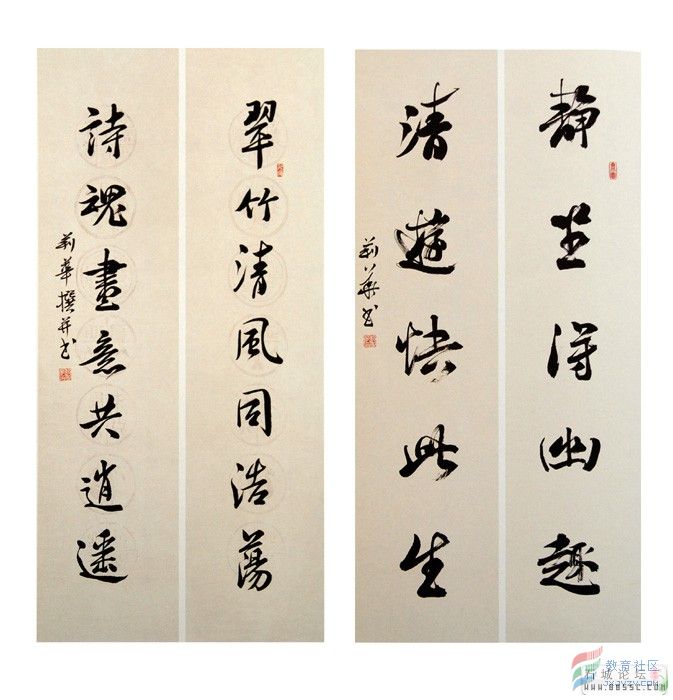 靜坐得幽趣
清遊快此生
莉華书
翠竹清風同浩蕩
詩魂畫意共逍遙
莉華撰并书
教育社区
石城论坛